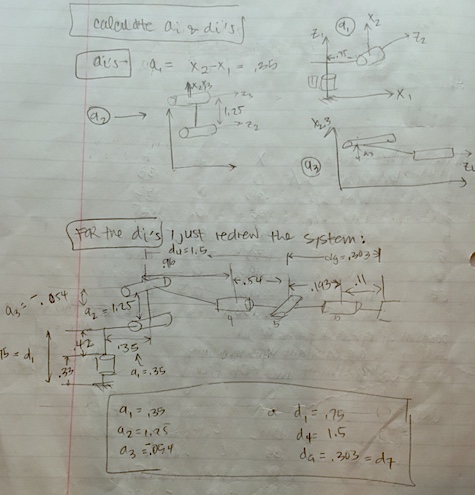 calculate ai & di's
ai's → a1 = x2-x1 = .35
a1
Z1
X2
Z2
.35
X1
a2 →
Z2
1.25
a3
X2,3
For the di's I just redrew the system:
d4=1.5
.96
.54
.193
.11
a3 = -.054
a2=1.25
4
5
.42
.35
= d1
.33
a1=.35
a1 = .35
a2 = 1.25
a3 = -.054
d1 = .75
d4 = 1.5
= .303 = d7